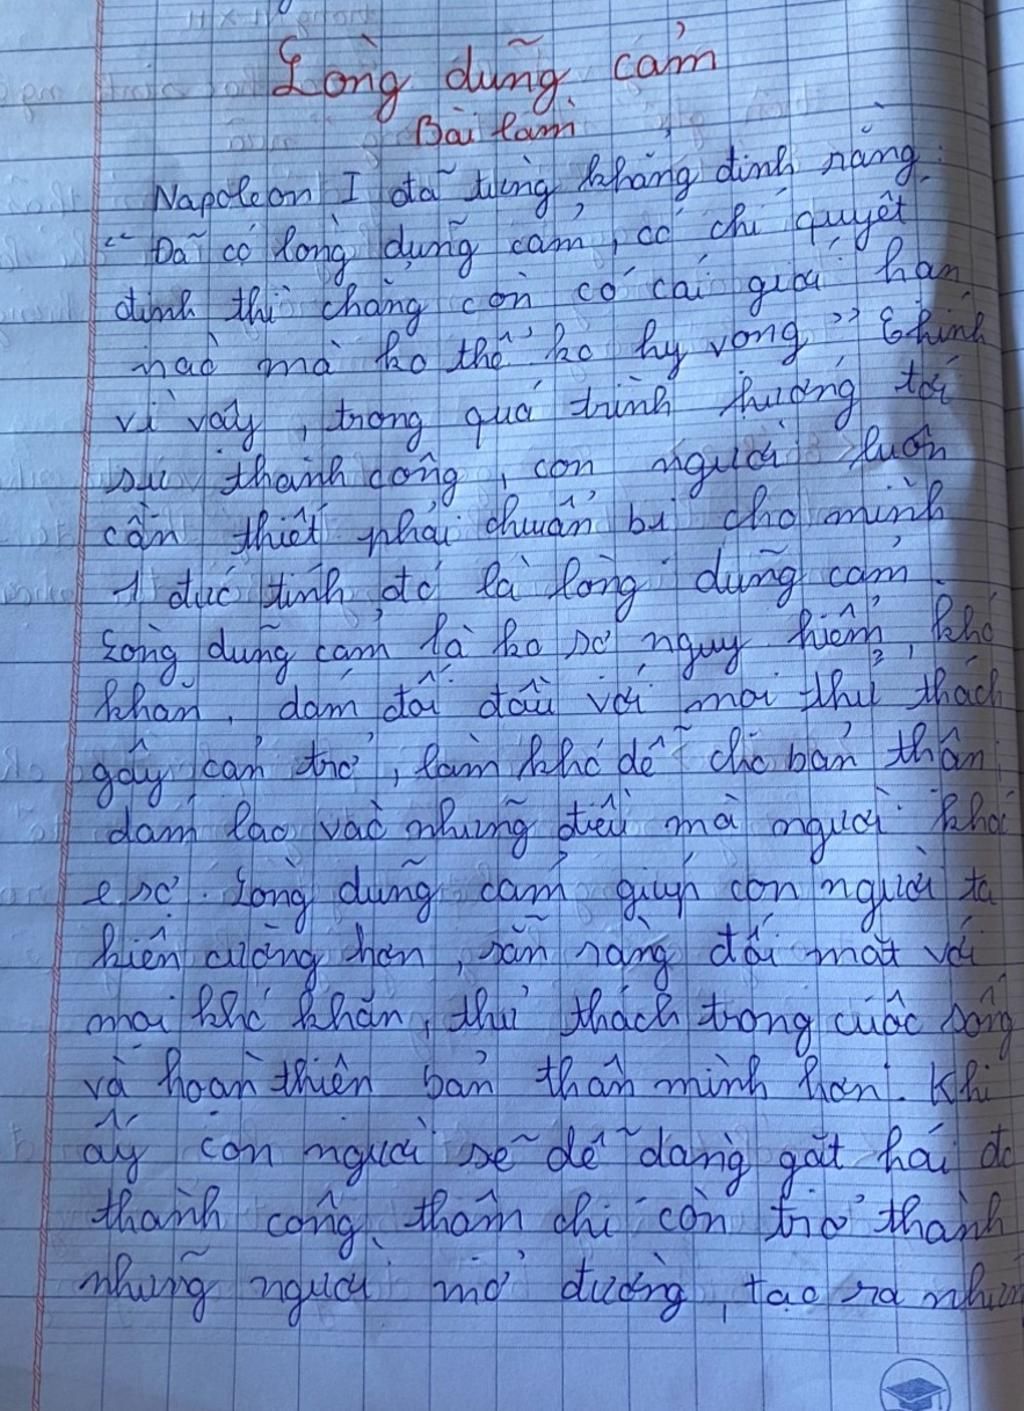 Lòng dũng cảm
Bài làm
Napoleon I đã từng khẳng định rằng:
“Đã có lòng dũng cảm, có chí quyết
định thì chẳng còn có cái giới hạn
nào mà ko thể ko hy vọng” Chính
vì vậy, trong quá trình hướng tới
sự thành công, con người luôn
cần thiết phải chuẩn bị cho mình
1 đức tính đó là lòng dũng cảm.
Lòng dũng cảm là ko sợ nguy hiểm, khó
khăn, dám đối đầu với mọi thử thách
gây cản trở, làm khó dễ cho bản thân,
dám lao vào những điều mà người khá
e sợ. Lòng dũng cảm giúp con người ta
kiên cường hơn, sẵn sàng đối mặt với
mọi khó khăn, thử thách trong cuộc sống
và hoàn thiện bản thân mình hơn. Khi
ấy con người sẽ dễ dàng gặt hái đc
thành công, thậm chí còn trở thành
những người mở đường, tạo ra nhữn